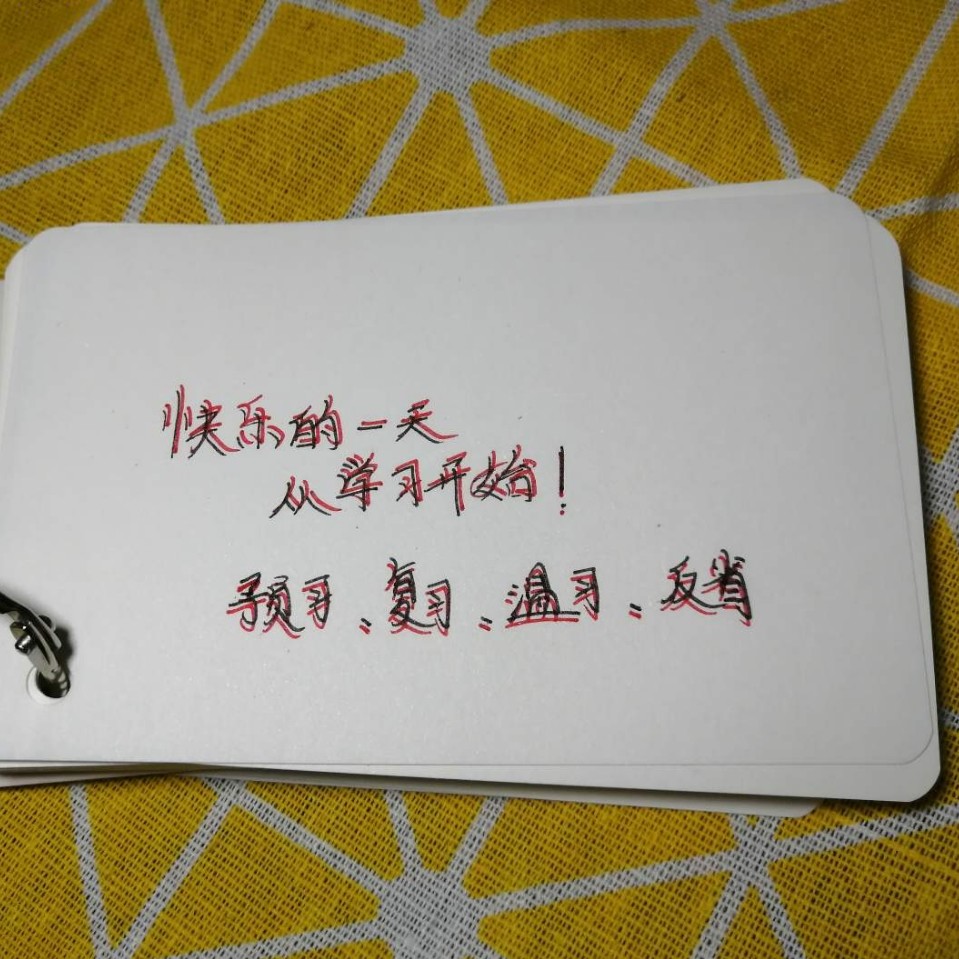 快乐的一天
从学习开始！
预习、复习、温习、反省